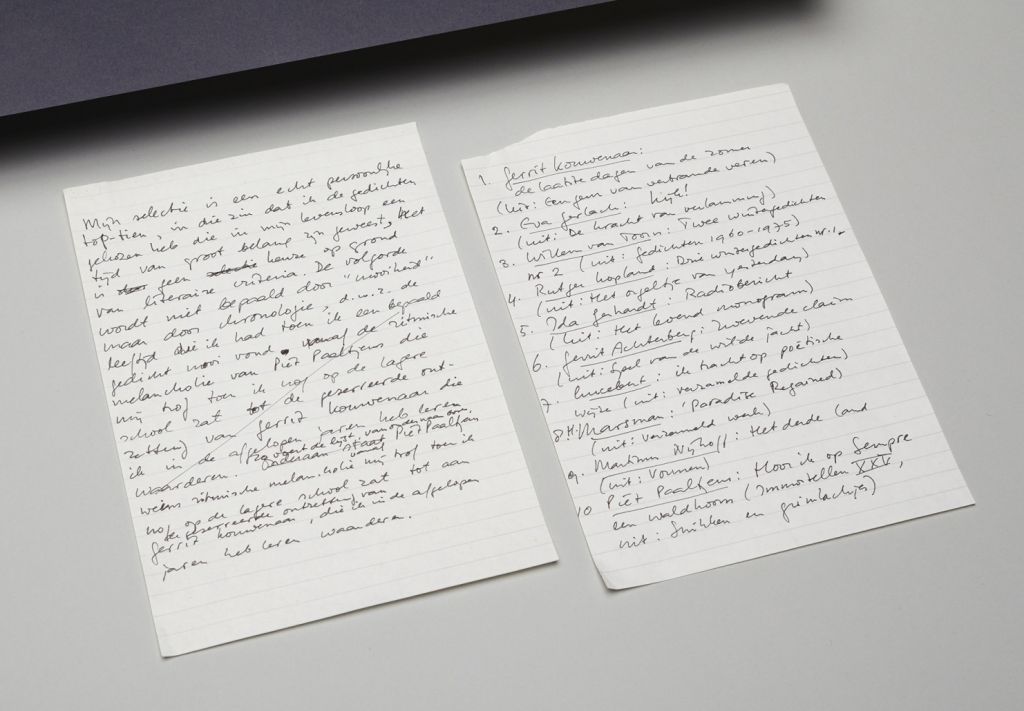 Mijn selectie is een echt persoonlijke
top-tien, in die zin dat ik de gedichten
gekozen heb die in mijn levensloop een
tijd van groot belang zijn geweest, Het
is geen keuze op grond
van literaire criteria. De volgorde
wordt niet bepaald door "mooiheid"
maar door chronologie, d.w.z. de
leeftijd die ik had toen ik een bepaald
gedicht mooi vond vanaf de ritmische
melancholie van Piet Paaltjens die
mij trof toen ik nog op de lagere
school zat tot de geserreerde ont-
zetting van Gerrit Kouwenaar die
ik in de afgelopen jaren heb leren
waarderen.
onderaan staat Piet Paaltjens
wiens ritmische melancholie mij trof toen ik
nog op de lagere school zat tot aan
de geserreerde ontzetting van
Gerrit Kouwenaar, die ik in de afgelopen
jaren heb leren waarderen.
1. Gerrit Kouwenaar:
de laatste dagen van de zomer
(Uit: Een gem van vertrande veren)
2. Eva Gerlach: Kijk!
(uit: De kracht van verlamming)
3. Willem van Toorn: Twee wintergedichten
nr 2 (uit: gedichten 1960-1975)
4. Rutger Kopland: Drie wintergedichten nr. 1
(uit: Het orgeltje van yesterday)
5. Ida Gerhardt: Radiobericht
(Uit: Het levend monogram)
6. Gerrit Achterberg: Zwevende claim
(uit: Spel van de wilde jacht)
7. Lucebert: ik tracht op poëtische
wijze (uit: verzamelde gedichten)
8 H. Marsman: 'Paradise Regained)
(uit: verzameld werk)
9. Martinus Nijhoff: Het derde land
(uit: Vormen)
10 Piet Paaltjens: Hoor ik op Sempre
een waldhoorn (Immortellen XXV,
uit: Snikken en grimlachjes)